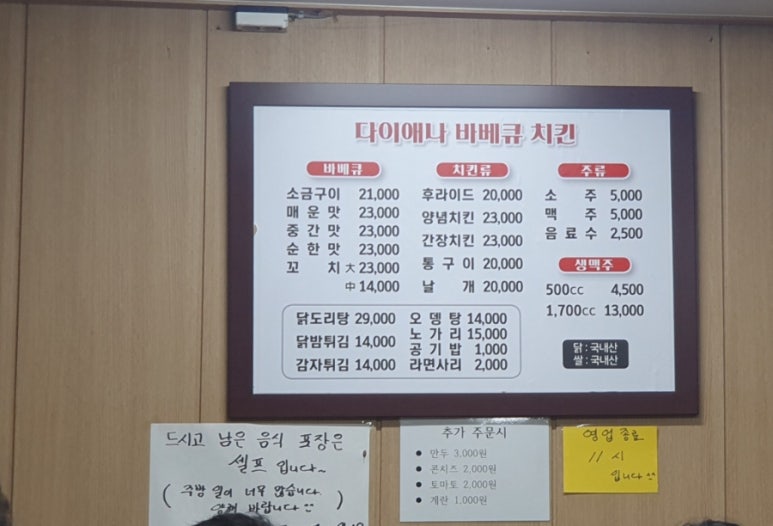 다이애나 바베큐 치킨
바베큐
소금구이 21,000
매운맛 23,000
중간맛 23,000
순한맛 23,000
꼬치 大 23,000
中 14,000
치킨류
후라이드 20,000
양념치킨 23,000
간장치킨 23,000
통구이 20,000
날개 20,000
주류
소주 5,000
맥주 5,000
음료수 2,500
생맥주
500cc 4,500
1,700cc 13,000
닭도리탕 29,000
닭밤튀김 14,000
감자튀김 14,000
오뎅탕 14,000
노가리 15,000
공기밥 1,000
라면사리 2,000
닭 : 국내산
쌀 : 국내산
드시고 남은 음식 포장은
셀프 입니다~
( 주방 일이 너무 많습니다
양해 바랍니다 )
추가 주문시
만두 3,000원
콘치즈 2,000원
토마토 2,000원
계란 1,000원
영업 종료
11 시
입니다